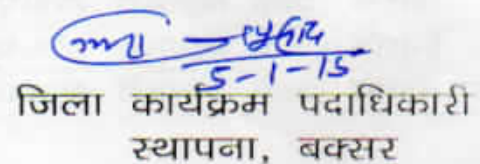 5-1-15
जिला कार्यक्रम पदाधिकारी
स्थापना, बक्सर